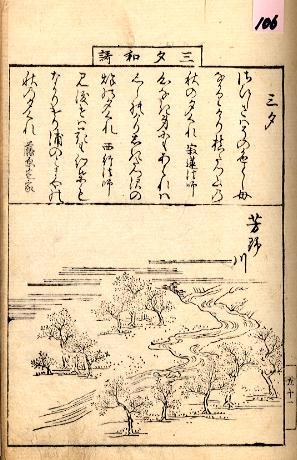 106
三夕和謌
三夕
さひしさはその色としも
なかりけり槙たつ山の
秋の夕くれ 寂蓮法師
心なき身にもあはれは
しられけり鴫たつ沢の
秋の夕くれ 西行法師
見渡せは花も紅葉も
なかりけり浦のとまやの
秋の夕くれ 藤原定家
芳野川
五十一